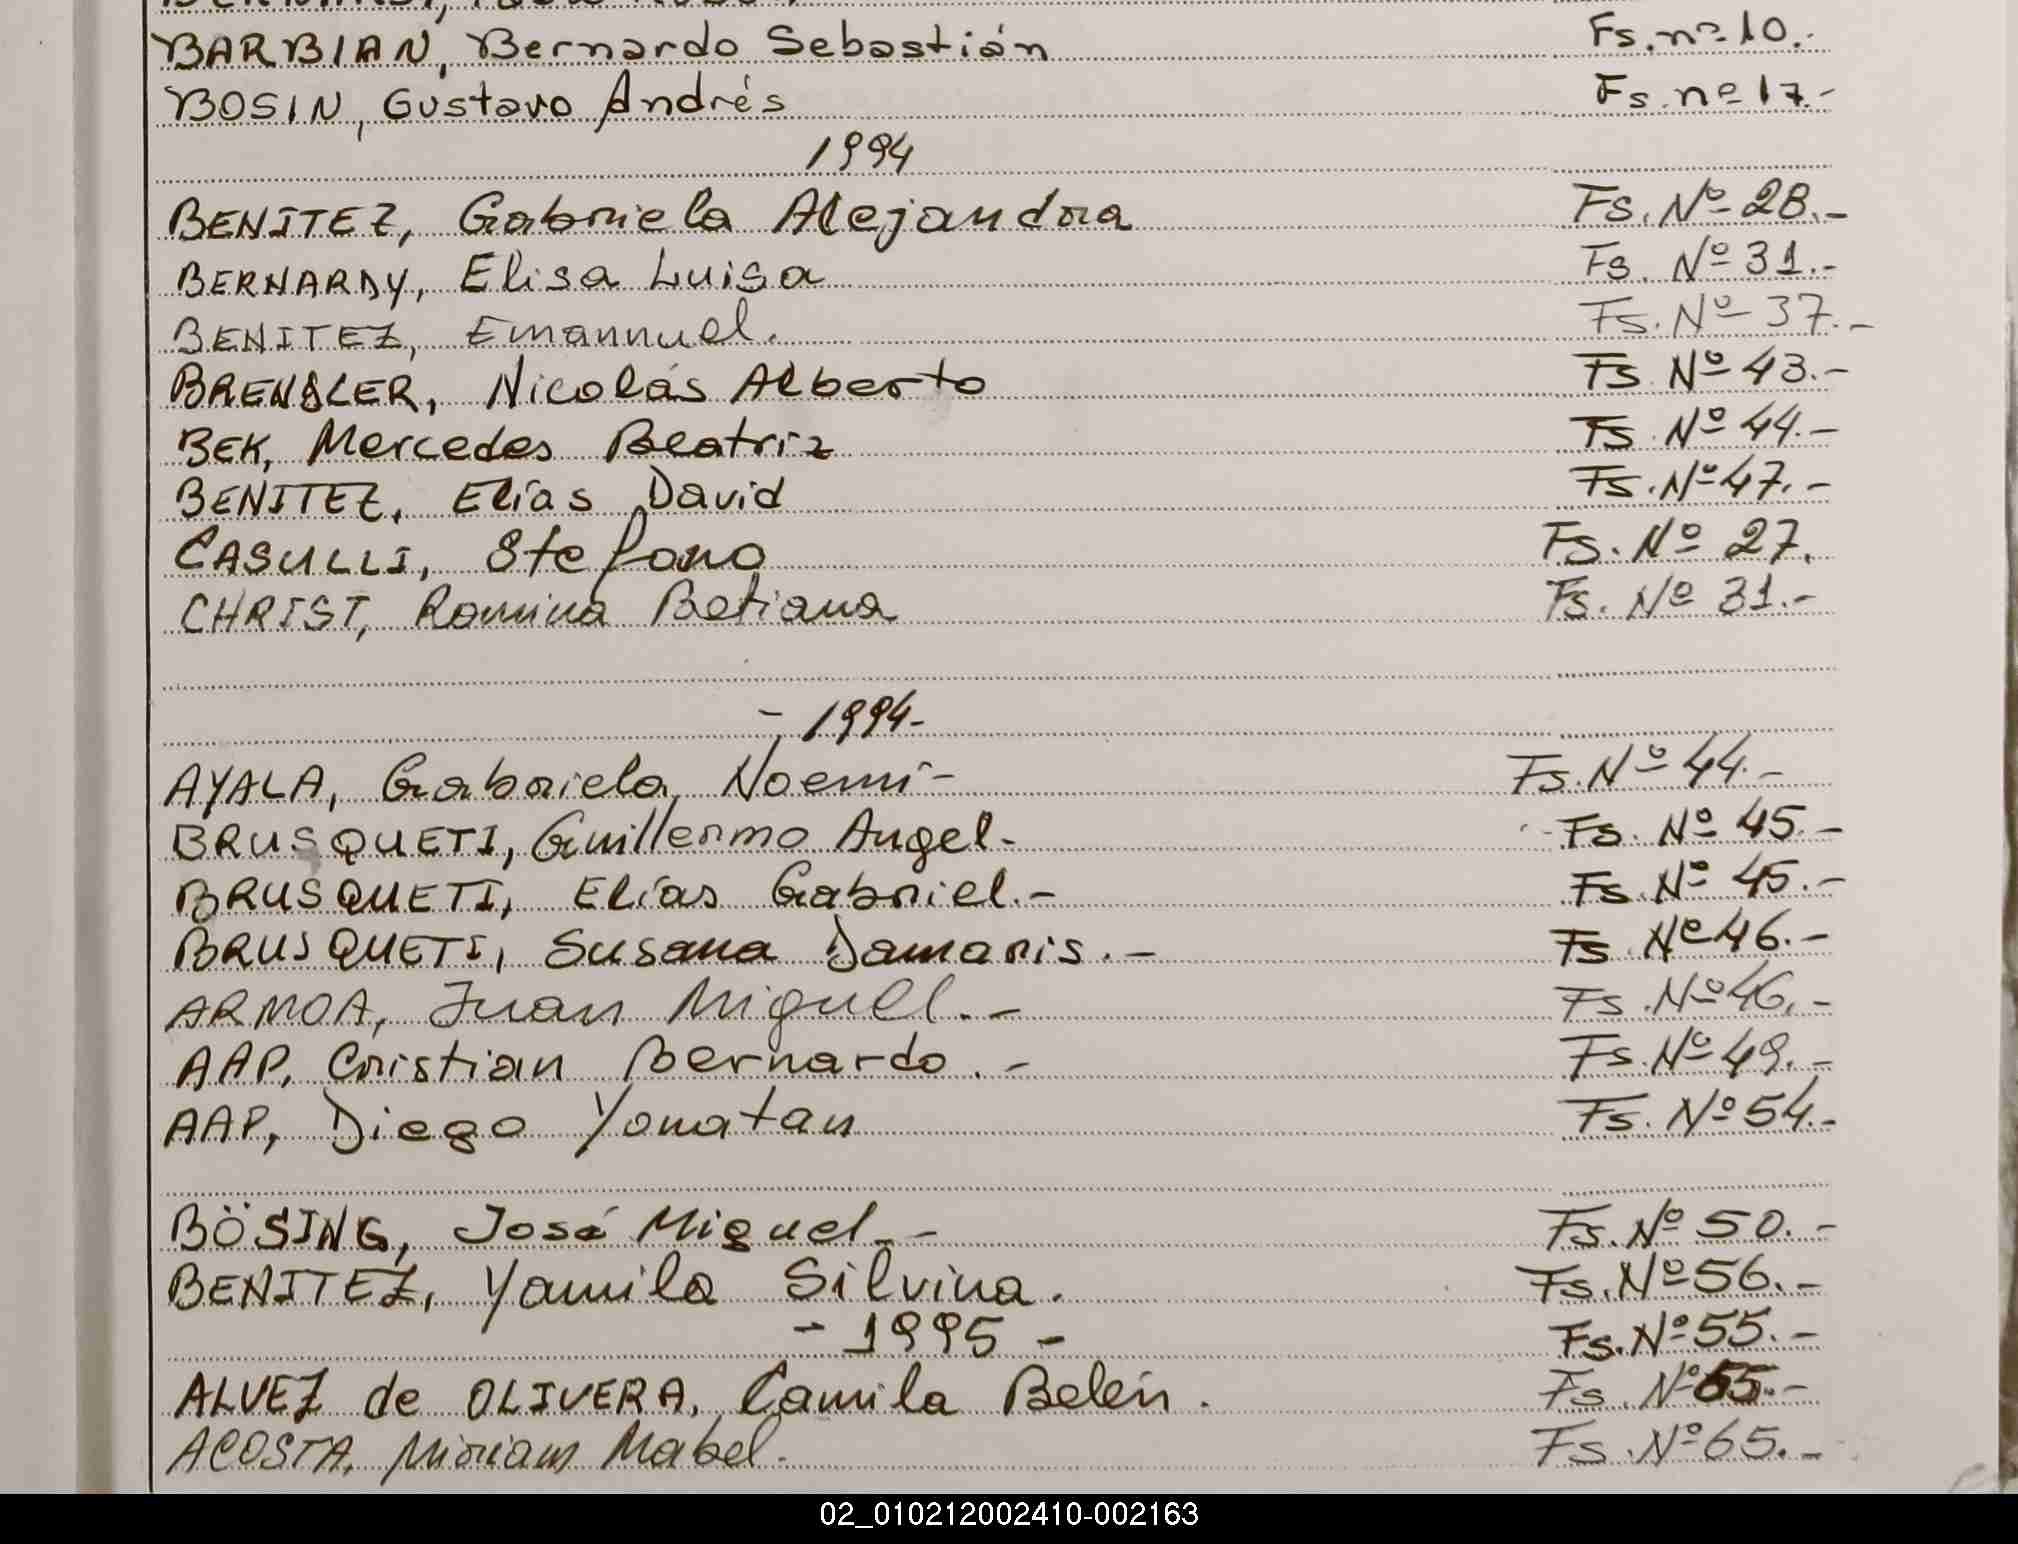 BARBIAN, Bernardo Sebastián Fs. nº 10.-
BOSIN, Gustavo Andrés Fs. nº 17.-
1994
BENITEZ, Gabriela Alejandra Fs. Nº 28.-
BERNARDY, Elisa Luisa Fs. Nº 31.-
BENITEZ, Emannuel. Fs. Nº 37.-
BRENDLER, Nicolás Alberto Fs Nº 43.-
BEK, Mercedes Beatriz Fs. Nº 44.-
BENITEZ, Elías David Fs. Nº 47.-
CASULLI, Stefano Fs. Nº 27.
CHRIST, Romina Betiana Fs. Nº 31.-
- 1994-
AYALA, Gabriela Noemí- Fs. Nº 44.-
BRUSQUETI, Guillermo Angel- Fs. Nº 45.-
BRUSQUETI, Elías Gabriel.- Fs. Nº 45.-
BRUSQUETI, Susana Damaris.- Fs Nº 46.-
ARMOA, Juan Miguel.- Fs. Nº 46.-
AAP, Cristian Bernardo.- Fs. Nº 49.-
AAP, Diego Yonatan Fs. Nº 54.-
BÖSING, José Miguel.- Fs. Nº 50.-
BENITEZ, Yamila Silvina. Fs. Nº 56.-
- 1995 - Fs. Nº 55.-
ALVEZ de OLIVERA, Camila Belén. Fs. Nº 65.-
ACOSTA, Miriam Mabel. Fs. Nº 65.-
02_010212002410-002163